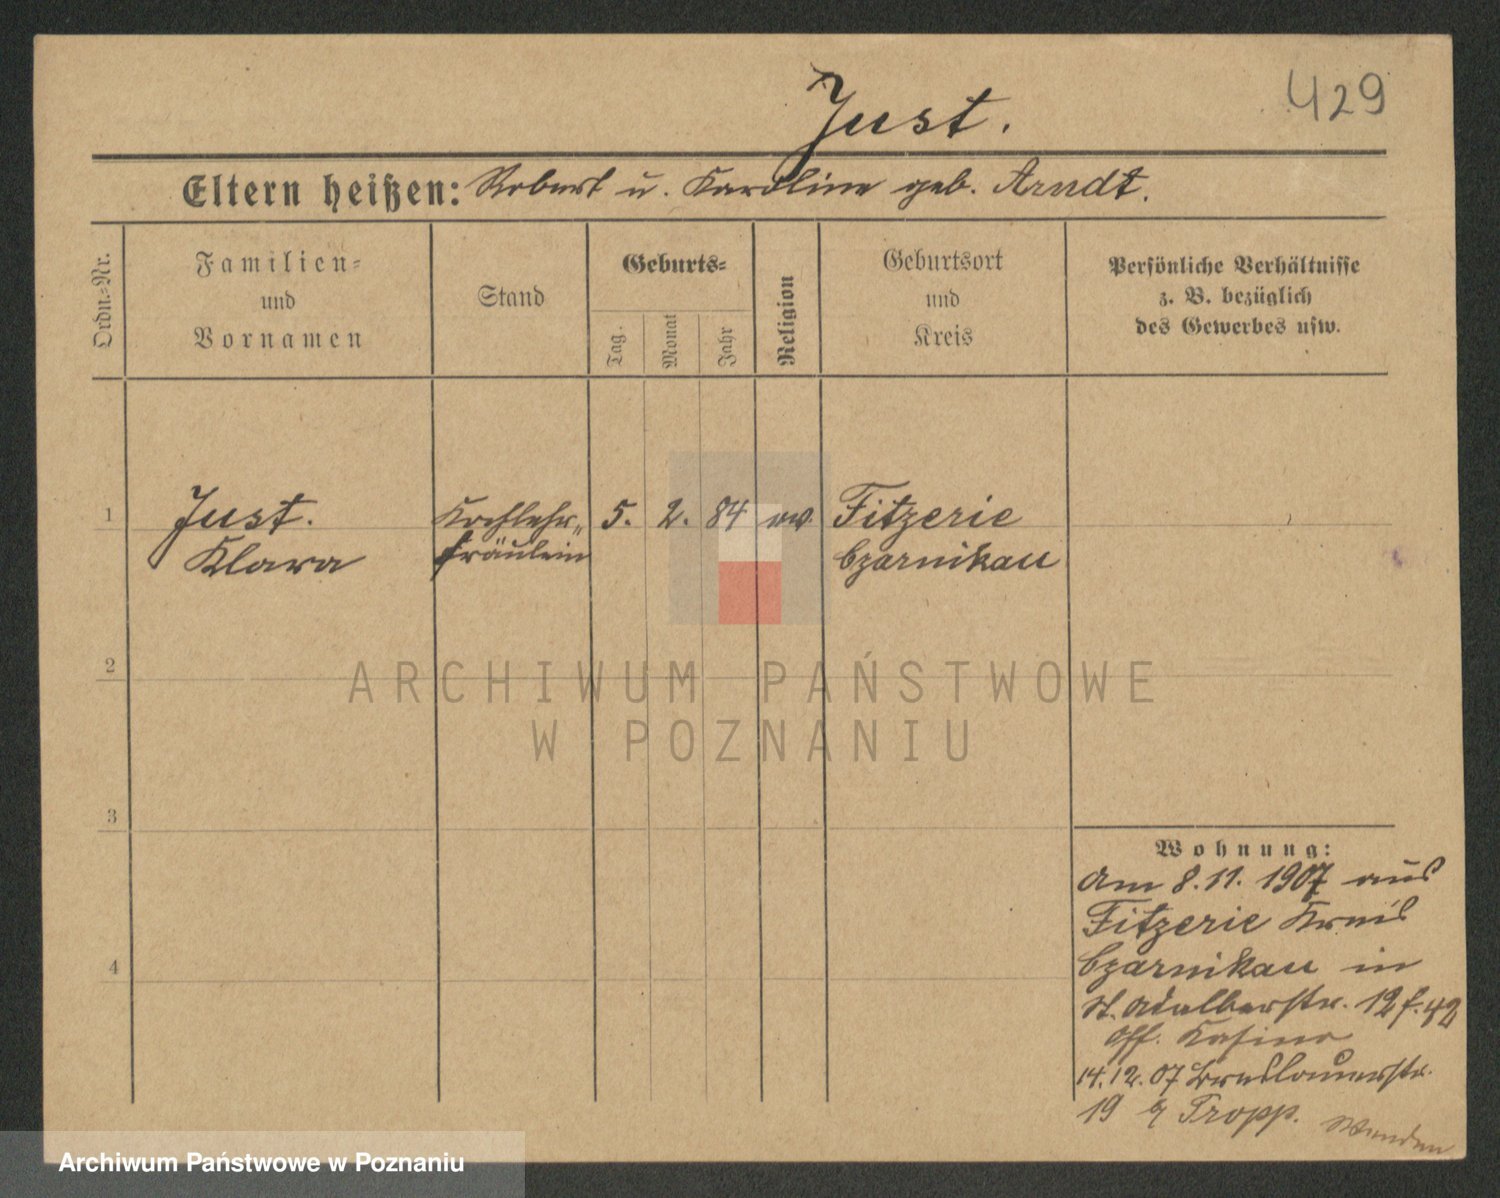 429
Just.
Eltern heißen: Robert u. Karoline geb. Arndt.
Ordn.-Nr.
Familien-
und
Vornamen
Stand
Geburts-
Tag.
Monat
Jahr
Religion
Geburtsort
und
Kreis
Persönliche Verhältnisse
z. B. bezüglich
des Gewerbes usw.
1 Just. Kochlehr- 5. 2. 84 ev. Fitzerie
Klara fräulein Czarnikau
2
ARCHIWUM PAŃSTWOWE
W POZNANIU
3
Wohnung:
am 8.11. 1907 aus
Fitzerie Kreis
Czarnikau in
St. Adalbertstr. 12 f. 42
Off. Kasino
4
14.12.07 Breslauerstr.
19 Tropp.
Archiwum Państwowe w Poznaniu